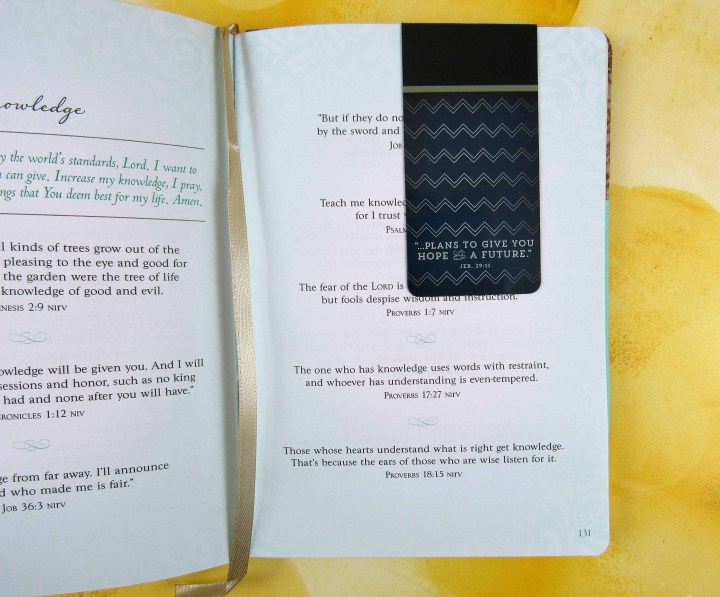 owledge
y the world's standards, Lord. I want to
can give. Increase my knowledge, I pray,
ngs that You deem best for my life. Amen.
l kinds of trees grow out of the
pleasing to the eye and good for
the garden were the tree of life
knowledge of good and evil.
ENESIS 2:9 NIRV
owledge will be given you. And I will
sessions and honor, such as no king
had and none after you will have."
HRONICLES 1:12 NIV
ge from far away. I'll announce
d who made me is fair."
JOB 36:3 NIRV
"But if they do no
by the sword and
JOB
Teach me knowledg
for I trust
PSALM
The fear of the LORD is
but fools despise wisdom and instruction.
PROVERBS 1:7 NIRV
The one who has knowledge uses words with restraint,
and whoever has understanding is even-tempered.
PROVERBS 17:27 NIRV
Those whose hearts understand what is right get knowledge.
That's because the ears of those who are wise listen for it.
PROVERBS 18:15 NIRV
131
"...PLANS TO GIVE YOU
HOPE and A FUTURE."
JER. 29:11